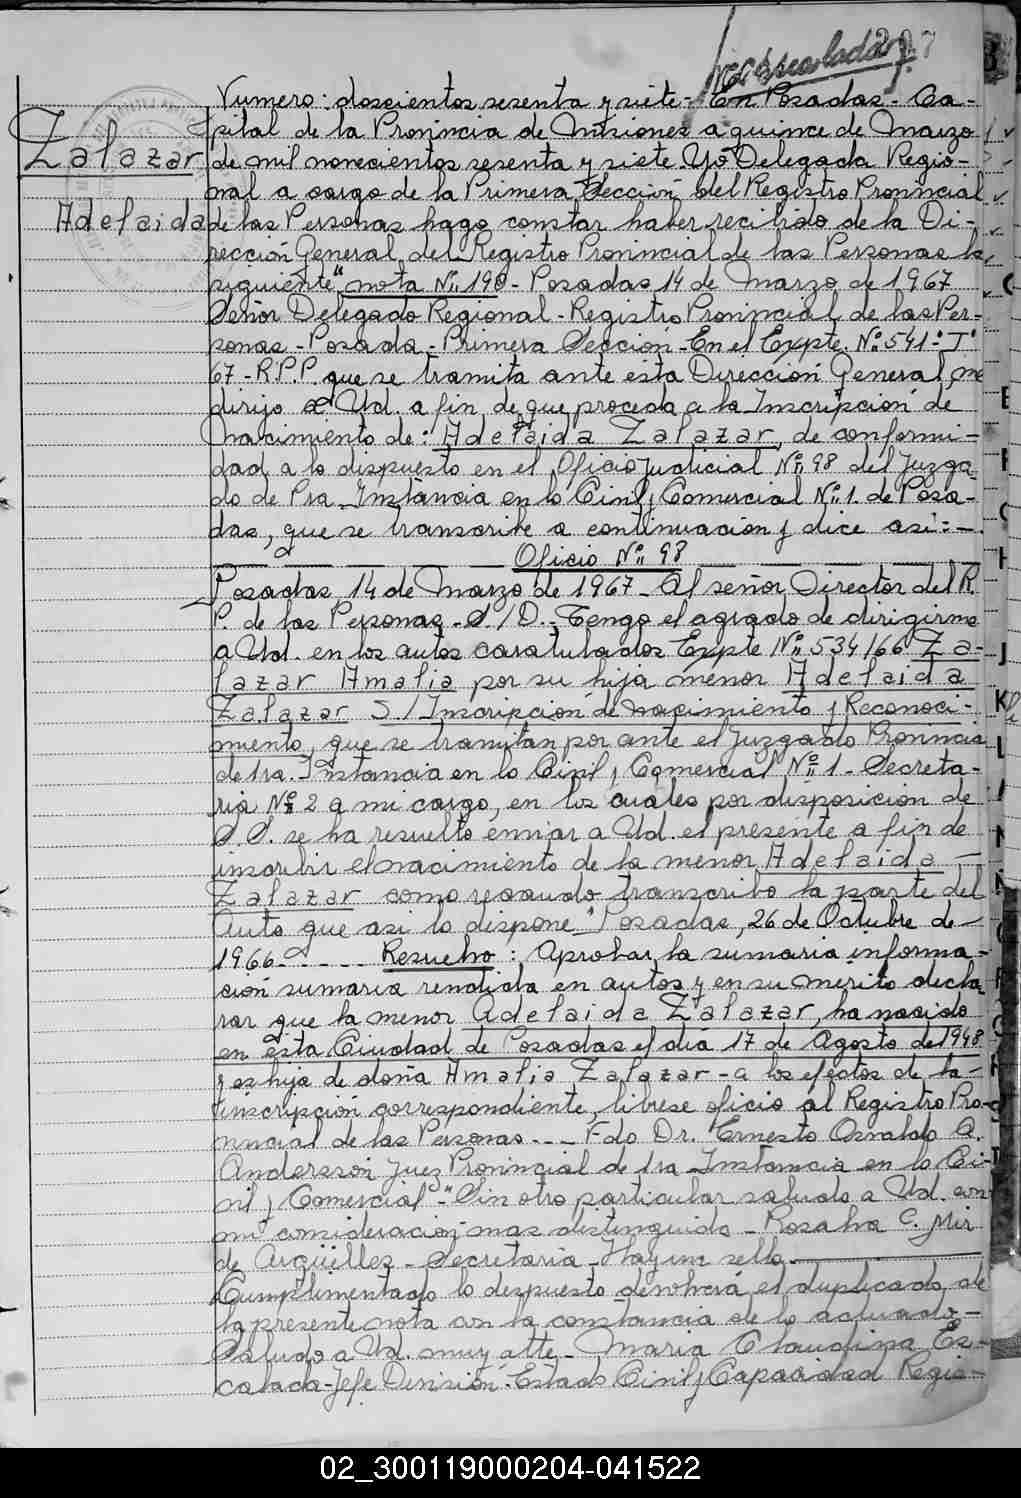 207
Numero: doscientos sesenta y siete - En Posadas - Ca-
pital de la Provincia de Misiones a quince de Marzo
Zalazar
de mil novecientos sesenta y siete Yo Delegada Regio-
nal a cargo de la Primera Sección del Registro Provincial
Adelaida
de las Personas hago constar haber recibido de la Di-
rección General del Registro Provincial de las Personas la
siguiente "nota Nº 190 - Posadas 14 de Marzo de 1967
Señor Delegado Regional - Registro Provincial de las Per-
sonas - Posada - Primera Sección - En el Expte. Nº 541- T'
67 - R.P.P. que se tramita ante esta Dirección General, me
dirijo a Ud. a fin de que proceda a la Inscripción de
Nacimiento de: Adelaida Zalazar, de conformi-
dad a lo dispuesto en el Oficio Judicial Nº 98 del Juzga-
do de 1ra. Instancia en lo Civil y Comercial Nº 1. de Posa-
das, que se transcribe a continuación y dice así: -
Oficio Nº 98
Posadas 14 de Marzo de 1967 - Al señor Director del R.
P. de las Personas - S./D. - Tengo el agrado de dirigirme
a Ud. en los autos caratulados Expte Nº 534/66 Za-
lazar Amalia por su hija menor Adelaida
Zalazar S/Inscripción de nacimiento y Reconoci-
miento, que se tramitan por ante el Juzgado Provincia
de 1ra. Instancia en lo Civil y Comercial Nº 1 - Secreta-
ria Nº 2 a mi cargo, en los cuales por disposición de
S.S. se ha resuelto enviar a Ud. el presente a fin de
inscribir el nacimiento de la menor Adelaida -
Zalazar como recaudo transcribo la parte del
Auto que asi lo dispone "Posadas, 26 de Octubre de -
1966 - - - - - Resuelvo: Aprobar la sumaria informa-
ción sumaria rendida en autos y en su mérito decla
rar que la menor Adelaida Zalazar, ha nacido
en esta Ciudad de Posadas el día 17 de Agosto de 1948
y es hija de doña Amalia Zalazar - a los efectos de la -
inscripción correspondiente, librese oficio al Registro Pro-
vincial de las Personas - - - Fdo Dr. Ernesto Osvaldo A.
Andersson Juez Provincial de 1ra Instancia en lo Ci-
vil y Comercial" - Sin otro particular saludo a Ud. con
mi consideración mas distinguida - Rosalva C. Mir
de Argüelles - Secretaria - Hay un sello. -
Cumplimentado lo dispuesto devolverá el duplicado de
la presente nota con la constancia de lo actuado. -
Saludo a Ud. muy atte - Maria Claudina Es-
calada - Jefe División - Estado Civil y Capacidad Regis-
02_300119000204-041522